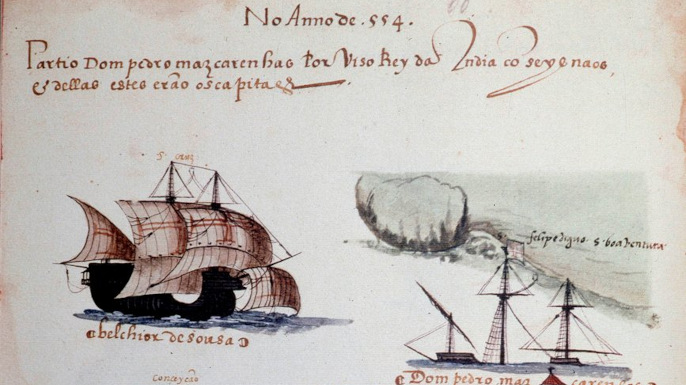 No Anno de .554.
Partio Dom pedro mazcarenhas por Viso Rey da India cõ seys naos,
e dellas estes erão os capitaes
S cruz
felipe diguo s boaventura
belchior de sousa
conceyção
Dom pedro maz carenhas